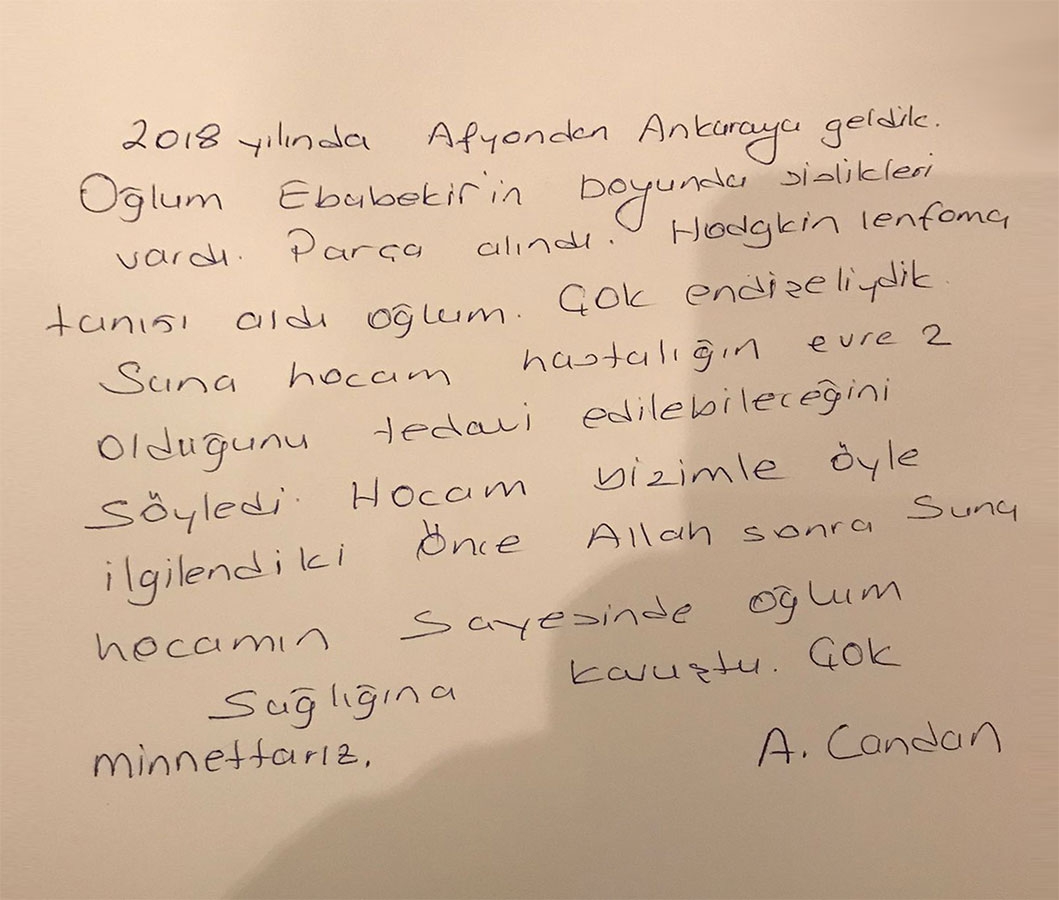 2018 yılında Afyondan Ankaraya geldik.
Oğlum Ebubekir'in boyunda şişlikleri
vardı. Parça alındı. Hodgkin lenfoma
tanısı aldı oğlum. Çok endişeliydik.
Suna hocam hastalığın evre 2
olduğunu tedavi edilebileceğini
söyledi. Hocam bizimle öyle
ilgilendiki Önce Allah sonra Suna
hocamın sayesinde oğlum
sağlığına kavuştu. Çok
minnettarız.
A. Candan